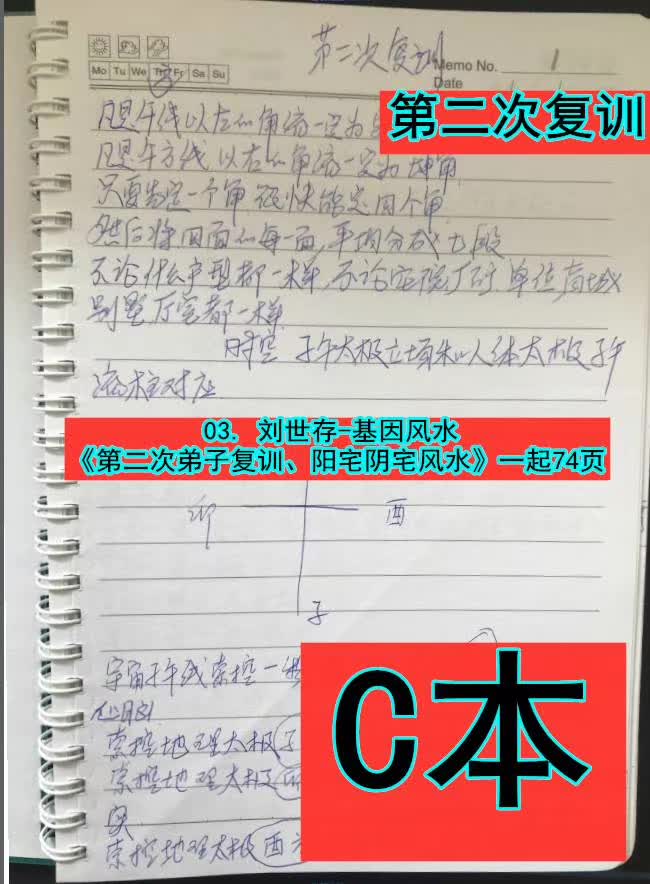 第二次复训
Memo No. 1
Mo Tu We Th Fr Sa Su
Date
第二次复训
凡是午线以左的角流一定为
凡是午方线以右的角流一定为坤角
只要者定一个角 很快能定四个角
然后将四面的每一面,平均分成七段
不论什么户型都一样,不论医院厂矿 单位,商城
别墅 厅室都一样
时空 子午太极立项和人体太极子午
流柱对应
03. 刘世存-基因风水
《第二次弟子复训、阳宅阴宅风水》一起74页
卯 西
子
宇宙子午线掌控一
掌控地理太极子
掌控地理太极
掌控地理太极酉
C本